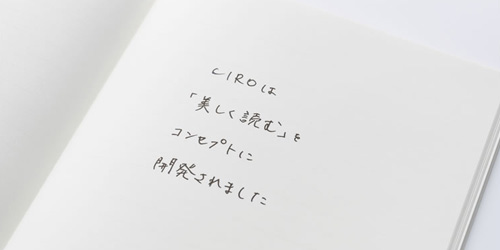 CIROは
「美しく読む」を
コンセプトに
開発されました